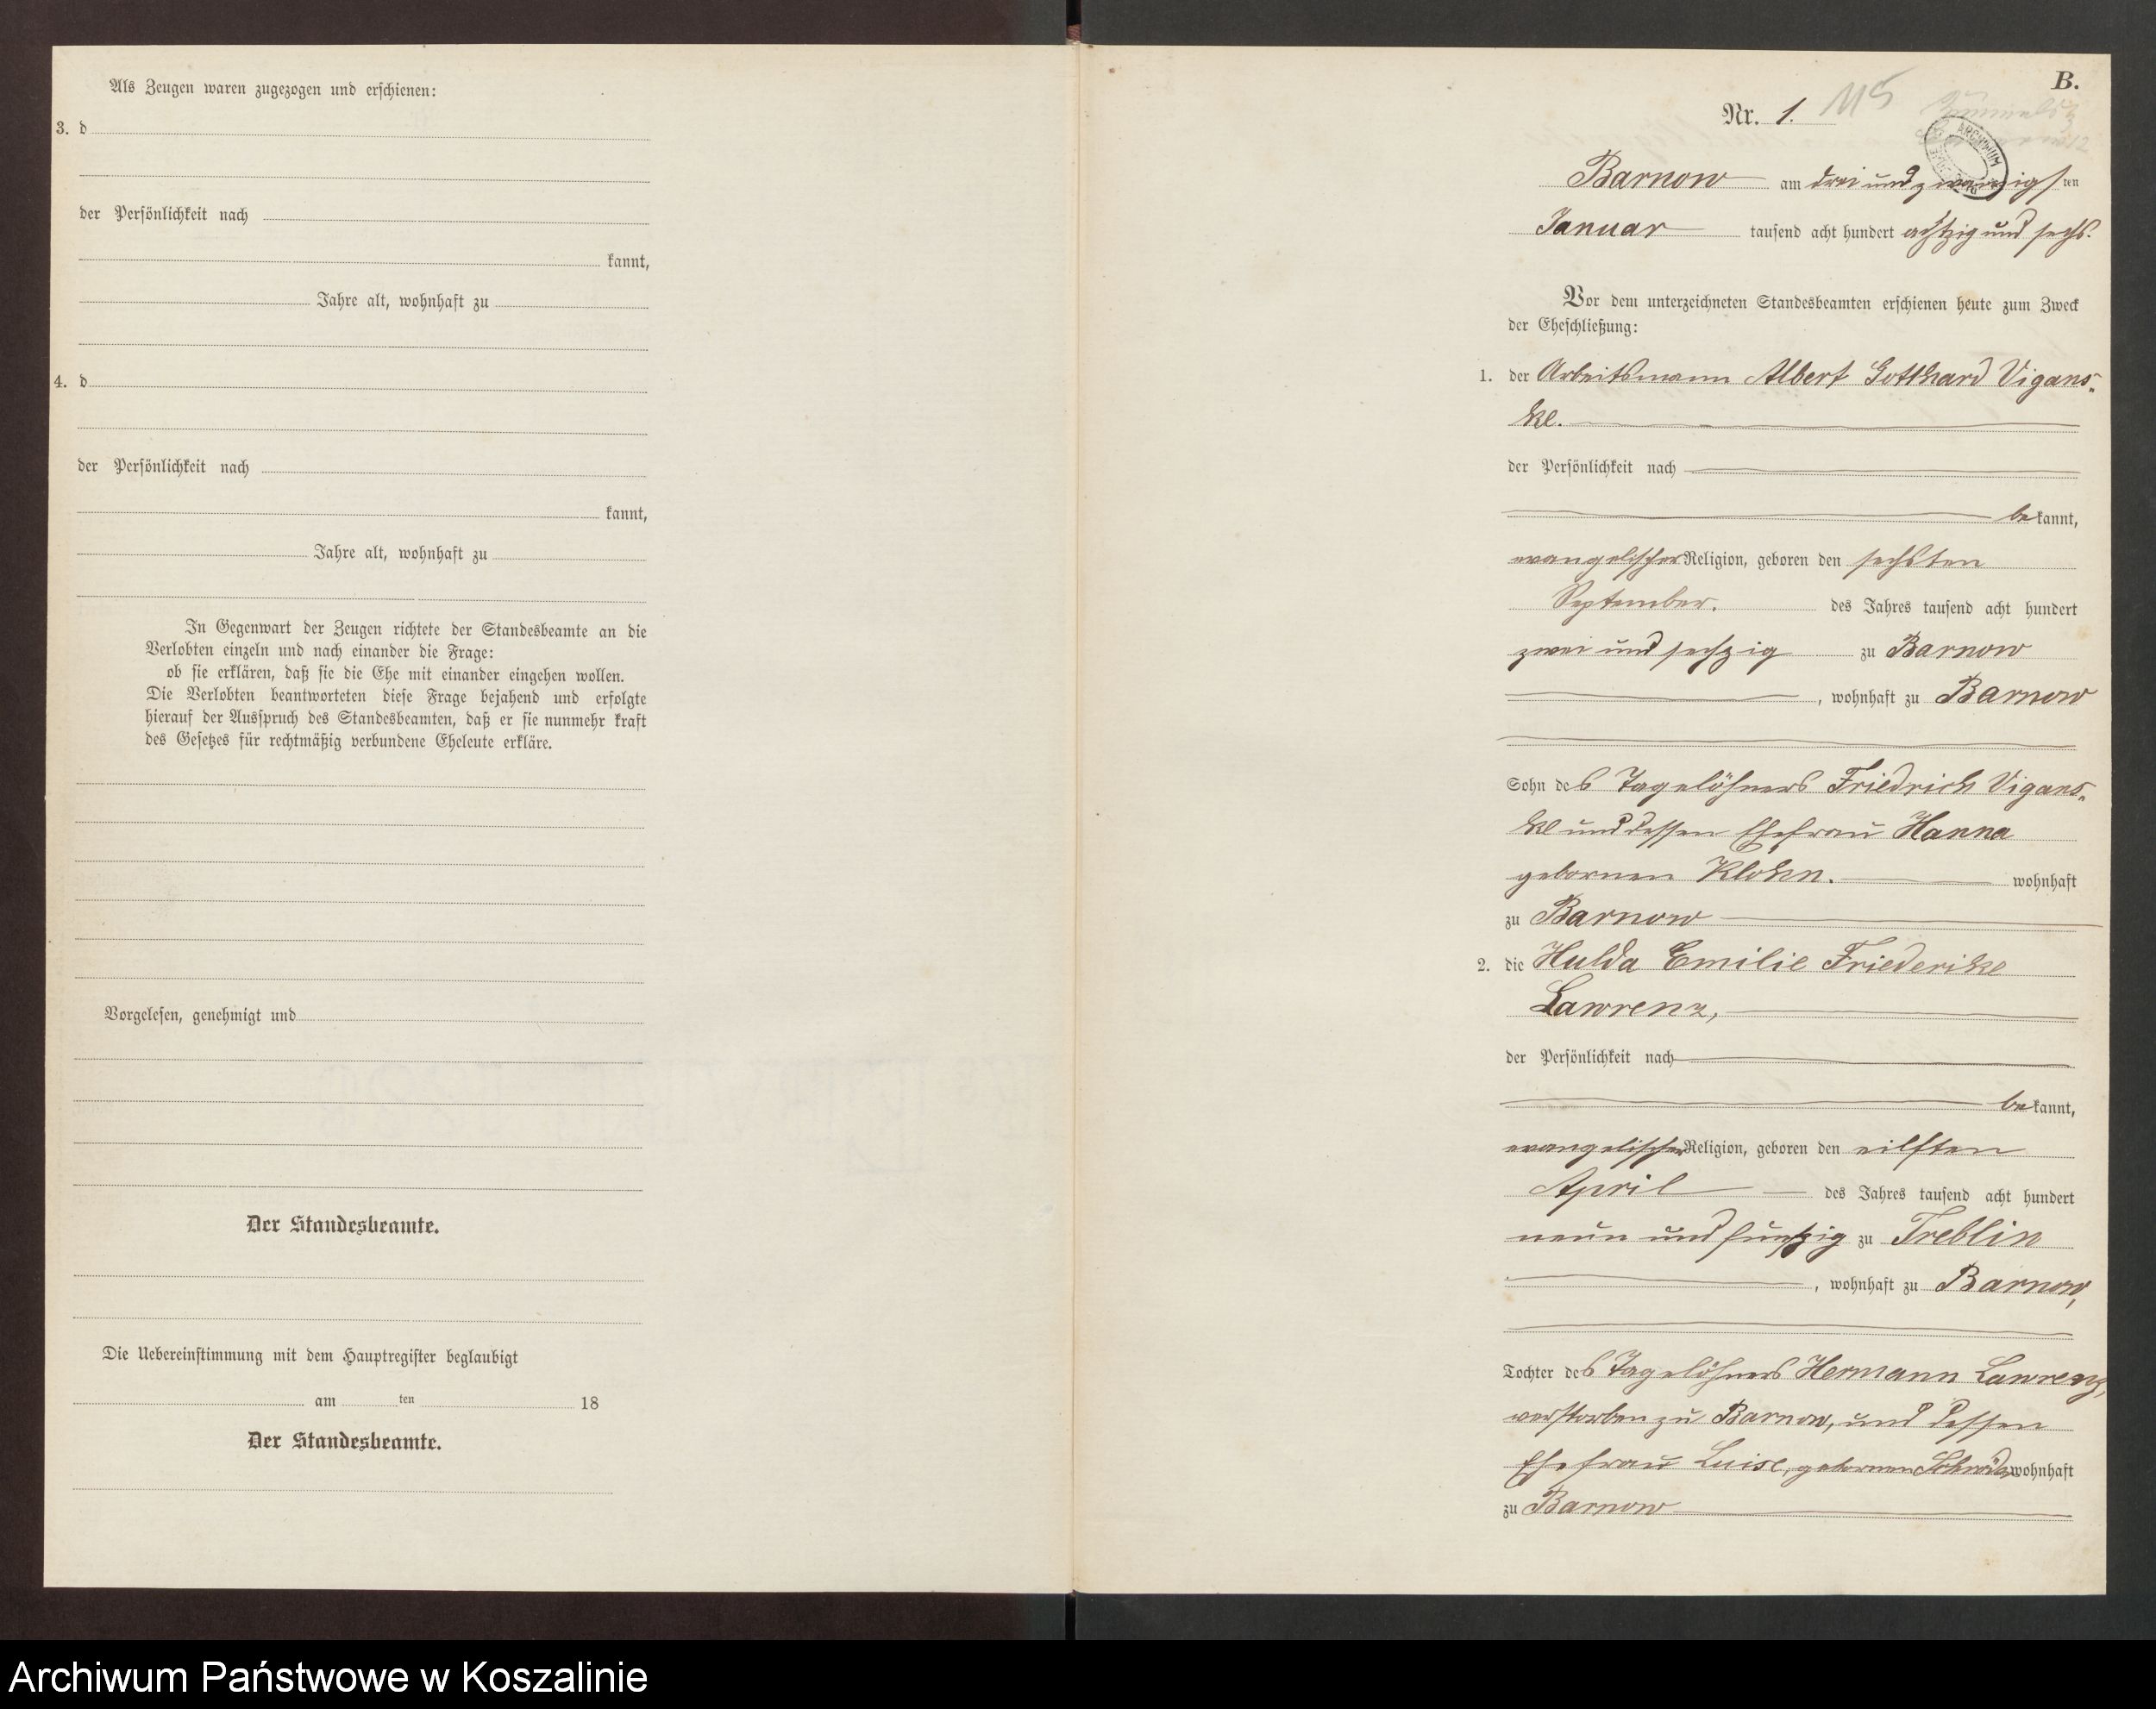 Als Zeugen waren zugezogen und erschienen:
3. d
der Persönlichkeit nach
kannt,
Jahre alt, wohnhaft zu
4. d
der Persönlichkeit nach
kannt,
Jahre alt, wohnhaft zu
In Gegenwart der Zeugen richtete der Standesbeamte an die
Verlobten einzeln und nach einander die Frage:
ob sie erklären, daß sie die Ehe mit einander eingehen wollen.
Die Verlobten beantworteten diese Frage bejahend und erfolgte
hierauf der Ausspruch des Standesbeamten, daß er sie nunmehr kraft
des Gesetzes für rechtmäßig verbundene Eheleute erkläre.
Vorgelesen, genehmigt und
Der Standesbeamte.
Die Uebereinstimmung mit dem Hauptregister beglaubigt
am ten 18
Der Standesbeamte.
B.
Nr. 1. 115
ARCHIWUM
Barnow am drei und zwanzigsten
Januar tausend acht hundert achtzig und sechs.
Vor dem unterzeichneten Standesbeamten erschienen heute zum Zweck
der Eheschließung:
1. der Arbeitsmann Albert Gotthard Vigans-
ke.
der Persönlichkeit nach
bekannt,
evangelischer Religion, geboren den sechsten
September. des Jahres tausend acht hundert
zwei und sechzig zu Barnow
, wohnhaft zu Barnow
Sohn des Tagelöhners Friedrich Vigans-
ke und dessen Ehefrau Hanna
gebornen Klöhn. wohnhaft
zu Barnow
2. die Hulda Emilie Friederike
Lawrenz,
der Persönlichkeit nach
bekannt,
evangelischer Religion, geboren den eilften
April des Jahres tausend acht hundert
neun und fünfzig zu Treblin
, wohnhaft zu Barnow,
Tochter des Tagelöhners Hermann Lawrenz,
verstorben zu Barnow, und dessen
Ehefrau Luise, gebornen wohnhaft
zu Barnow
Archiwum Państwowe w Koszalinie